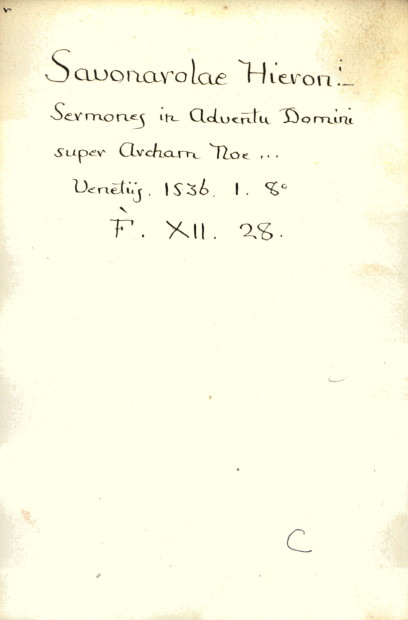 Savonarolae Hieron:–
Sermones in Adventu Domini
super Archam Noe ...
Venētijs. 1536. 1. 8°
F̀. XII. 28.
C